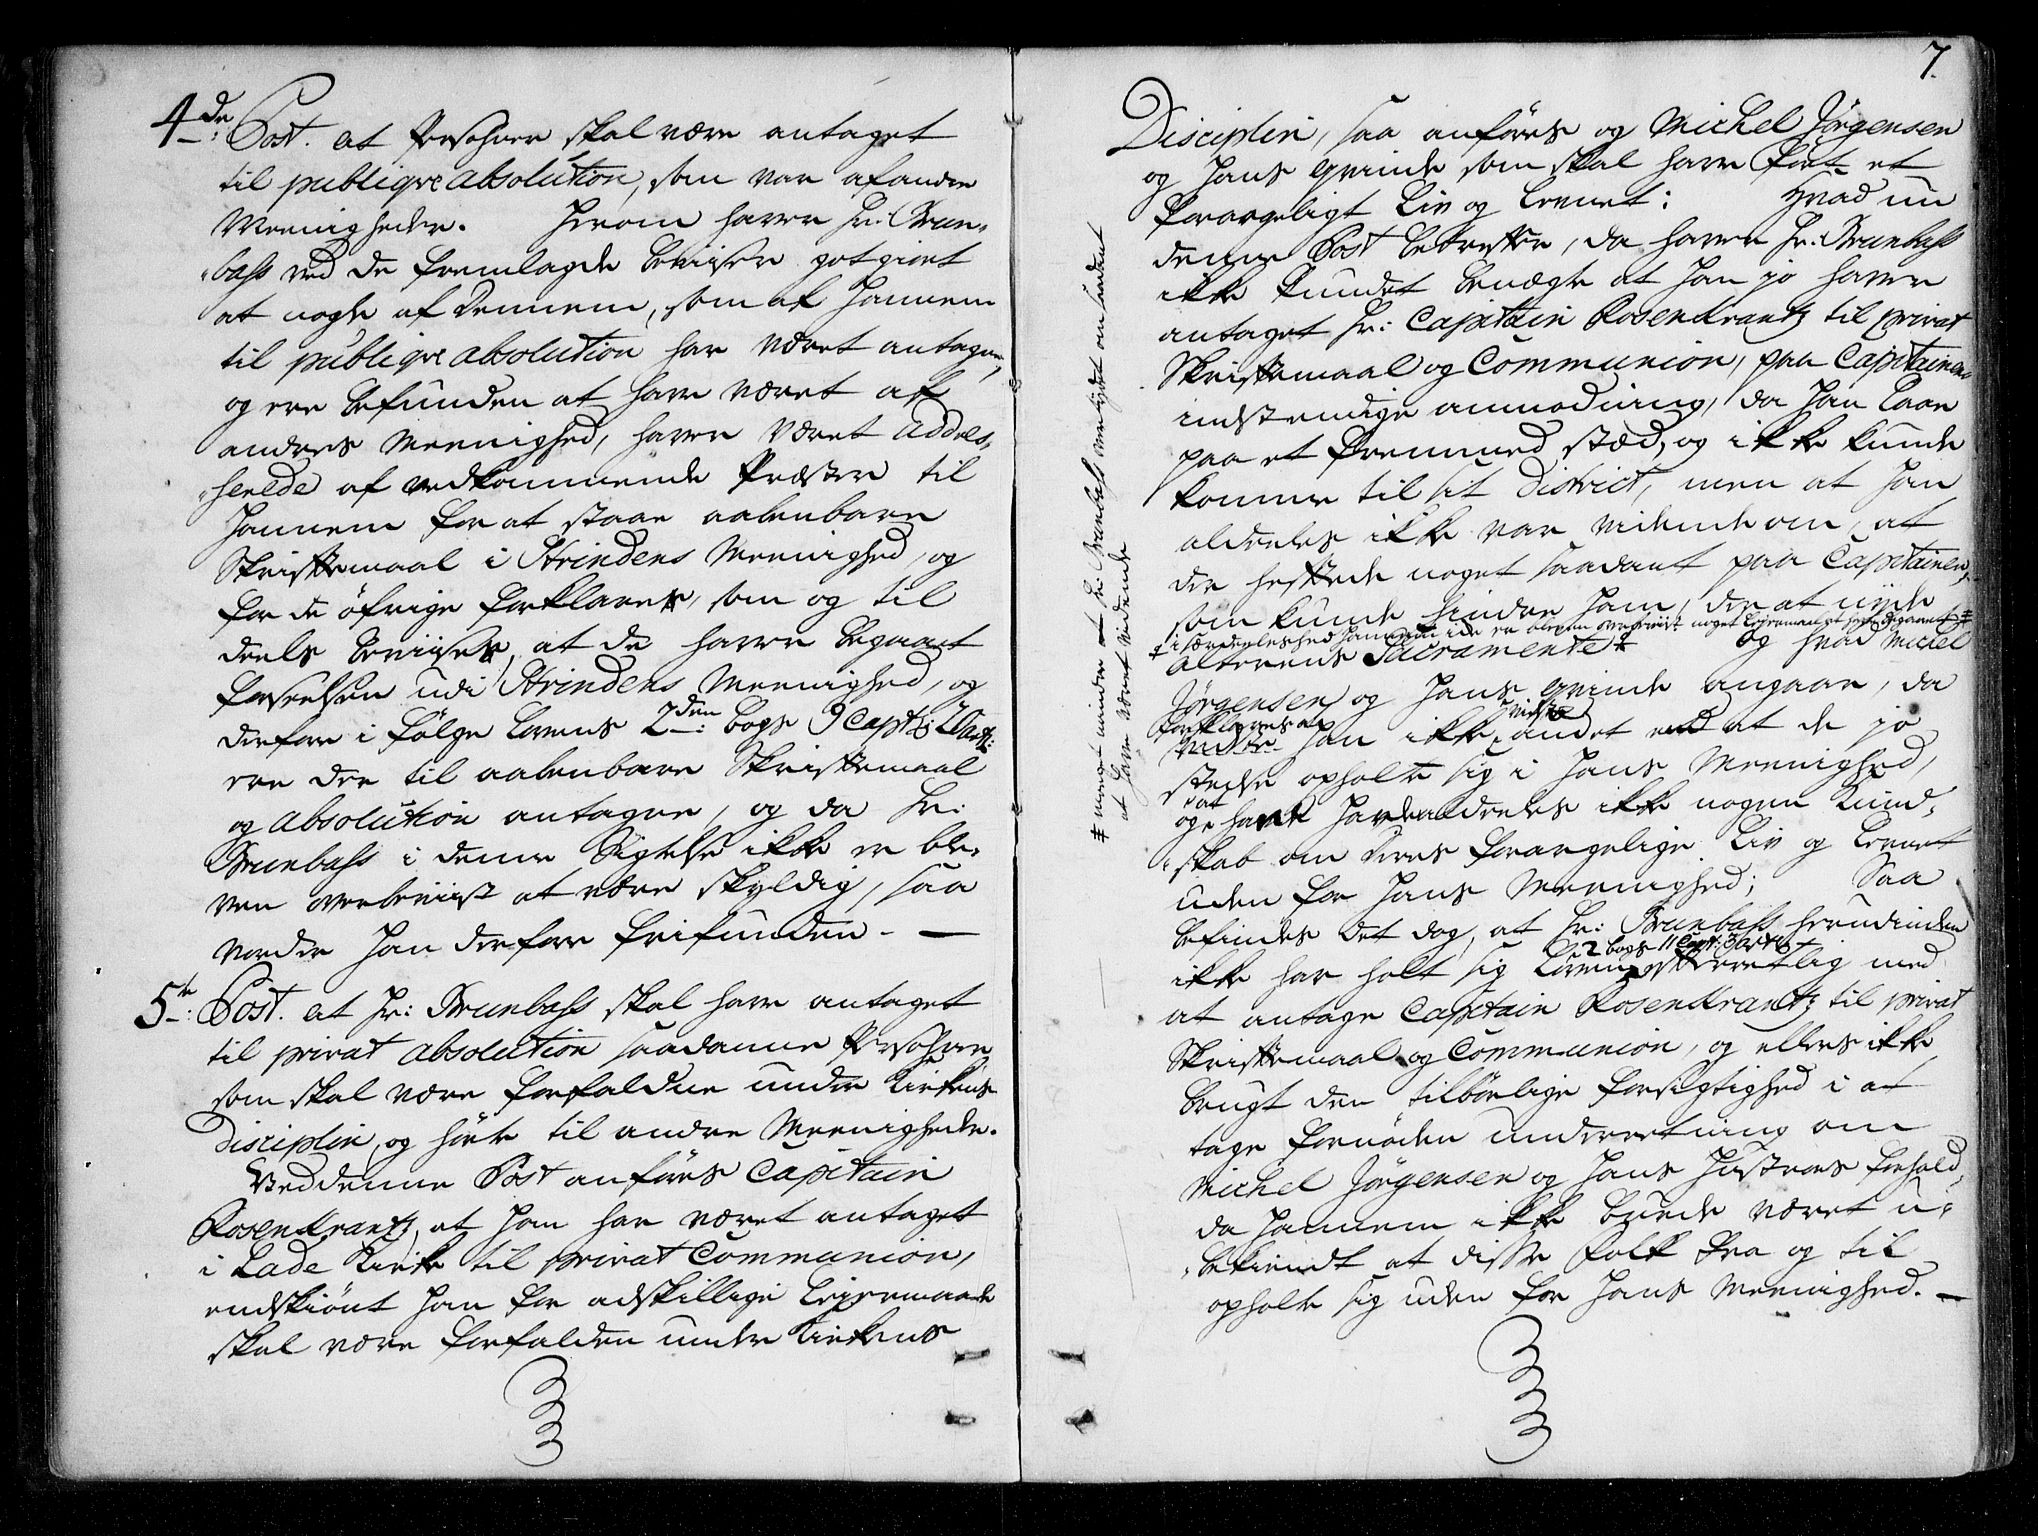 4de Post. at Persohner skal være antaget
til publiqve absolution, som var af andre
Meenigheder. Herom haver Hr: Brun-
bass ved de fremlagde Beviser got giort
at nogle af dennem, som af hannem
til publiqve absolution har været antagne,
og ere befunden at have været af
andres Meenighed, haver været Addres-
serede af vedkommende Præster til
hannem for at staae aabenbare
Skriftemaal i Strindens Meenighed, og
for de øfrige forklares, som og til
deels beviises, at de haver begaaet
forseelsen udi Strindens Meenighed, og
derfore i følge Lovens 2den bogs 9 Capt: 2 Art:
ere der til aabenbare Skriftemaal
og absolution antagne, og da Hr:
Brunbass i denne Sigtelse ikke er ble-
ven overbeviist at være skyldig, saa
vorder han derfore frifunden. —
5te Post. at Hr: Brunbass skal have antaget
til privat absolution saadanne Persohner
som skal være forfaldne under Kirkens
Disciplin, og hørte til andre Meenigheder.
Ved denne Post anføres Capitain
Rosenkrantz, at han har været antaget
i Lade Kirke til privat Communion,
endskiønt han for adskillige Leiermaale
skal være forfalden under Kirkens
7.
Disciplin, saa anføres og Michel Jørgensen
og hans qvinde som skal have ført et
forargeligt Liv og Levnet: Hvad nu
denne Post betreffer, da haver Hr: Brunbass
ikke kundet benægte at han jo haver
antaget Hr: Capitain Rosenkrantz til privat
Skriftemaal og Communion, paa Capitainens
indstendige anmodning, da han laae
paa et fremmed stæd, og ikke kunde
komme til sit District, men at han
aldeeles ikke var vidende om, at
der heftede noget saadant paa Capitainen,
som kunde hindre ham, der at nyde
i særdeleshed hannem ikke er bleven overbeviist noget Leiermaal at have begaaet #
Alterens Sacramente # og hvad Michel
Jørgensen og hans qvinde angaar, da
forklares at
vidste
han ikke andet end at de jo
stedse opholte sig i hans Meenighed,
og at hand havde aldeeles ikke nogen Kund-
skab om deres forargelige Liv og Levnet
uden for hans Meenighed; Saa
befindes det dog, at Hr: Brunbass herudinden
2 bogs 11 Capt: 3 Art:
ikke har holt sig Lovens efterretlig med
at antage Capitain Rosenkrantz til privat
Skriftemaal og Communion, og ellers ikke
brugt den tilbørlige forsigtighed i at
tage fornøden underretning om
Michel Jørgensen og hans Hustroes forhold,
da hannem ikke burde været u-
bekiendt at disse folk fra og til
opholte sig uden for hans Meenighed. —
# meget mindre at Hr: Brunbass om saadant
at have været vidende